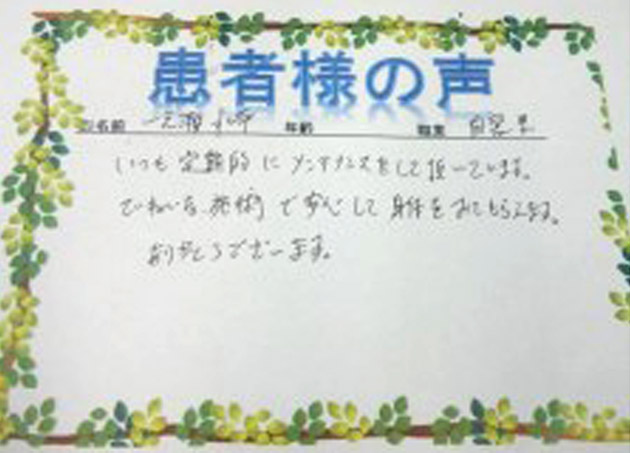 患者様の声
お名前 年齢 職業 自営業
いつも定期的にメンテナンスをして頂いています。
ていねいな施術で安心して身体をまかせられます。
ありがとうございます。